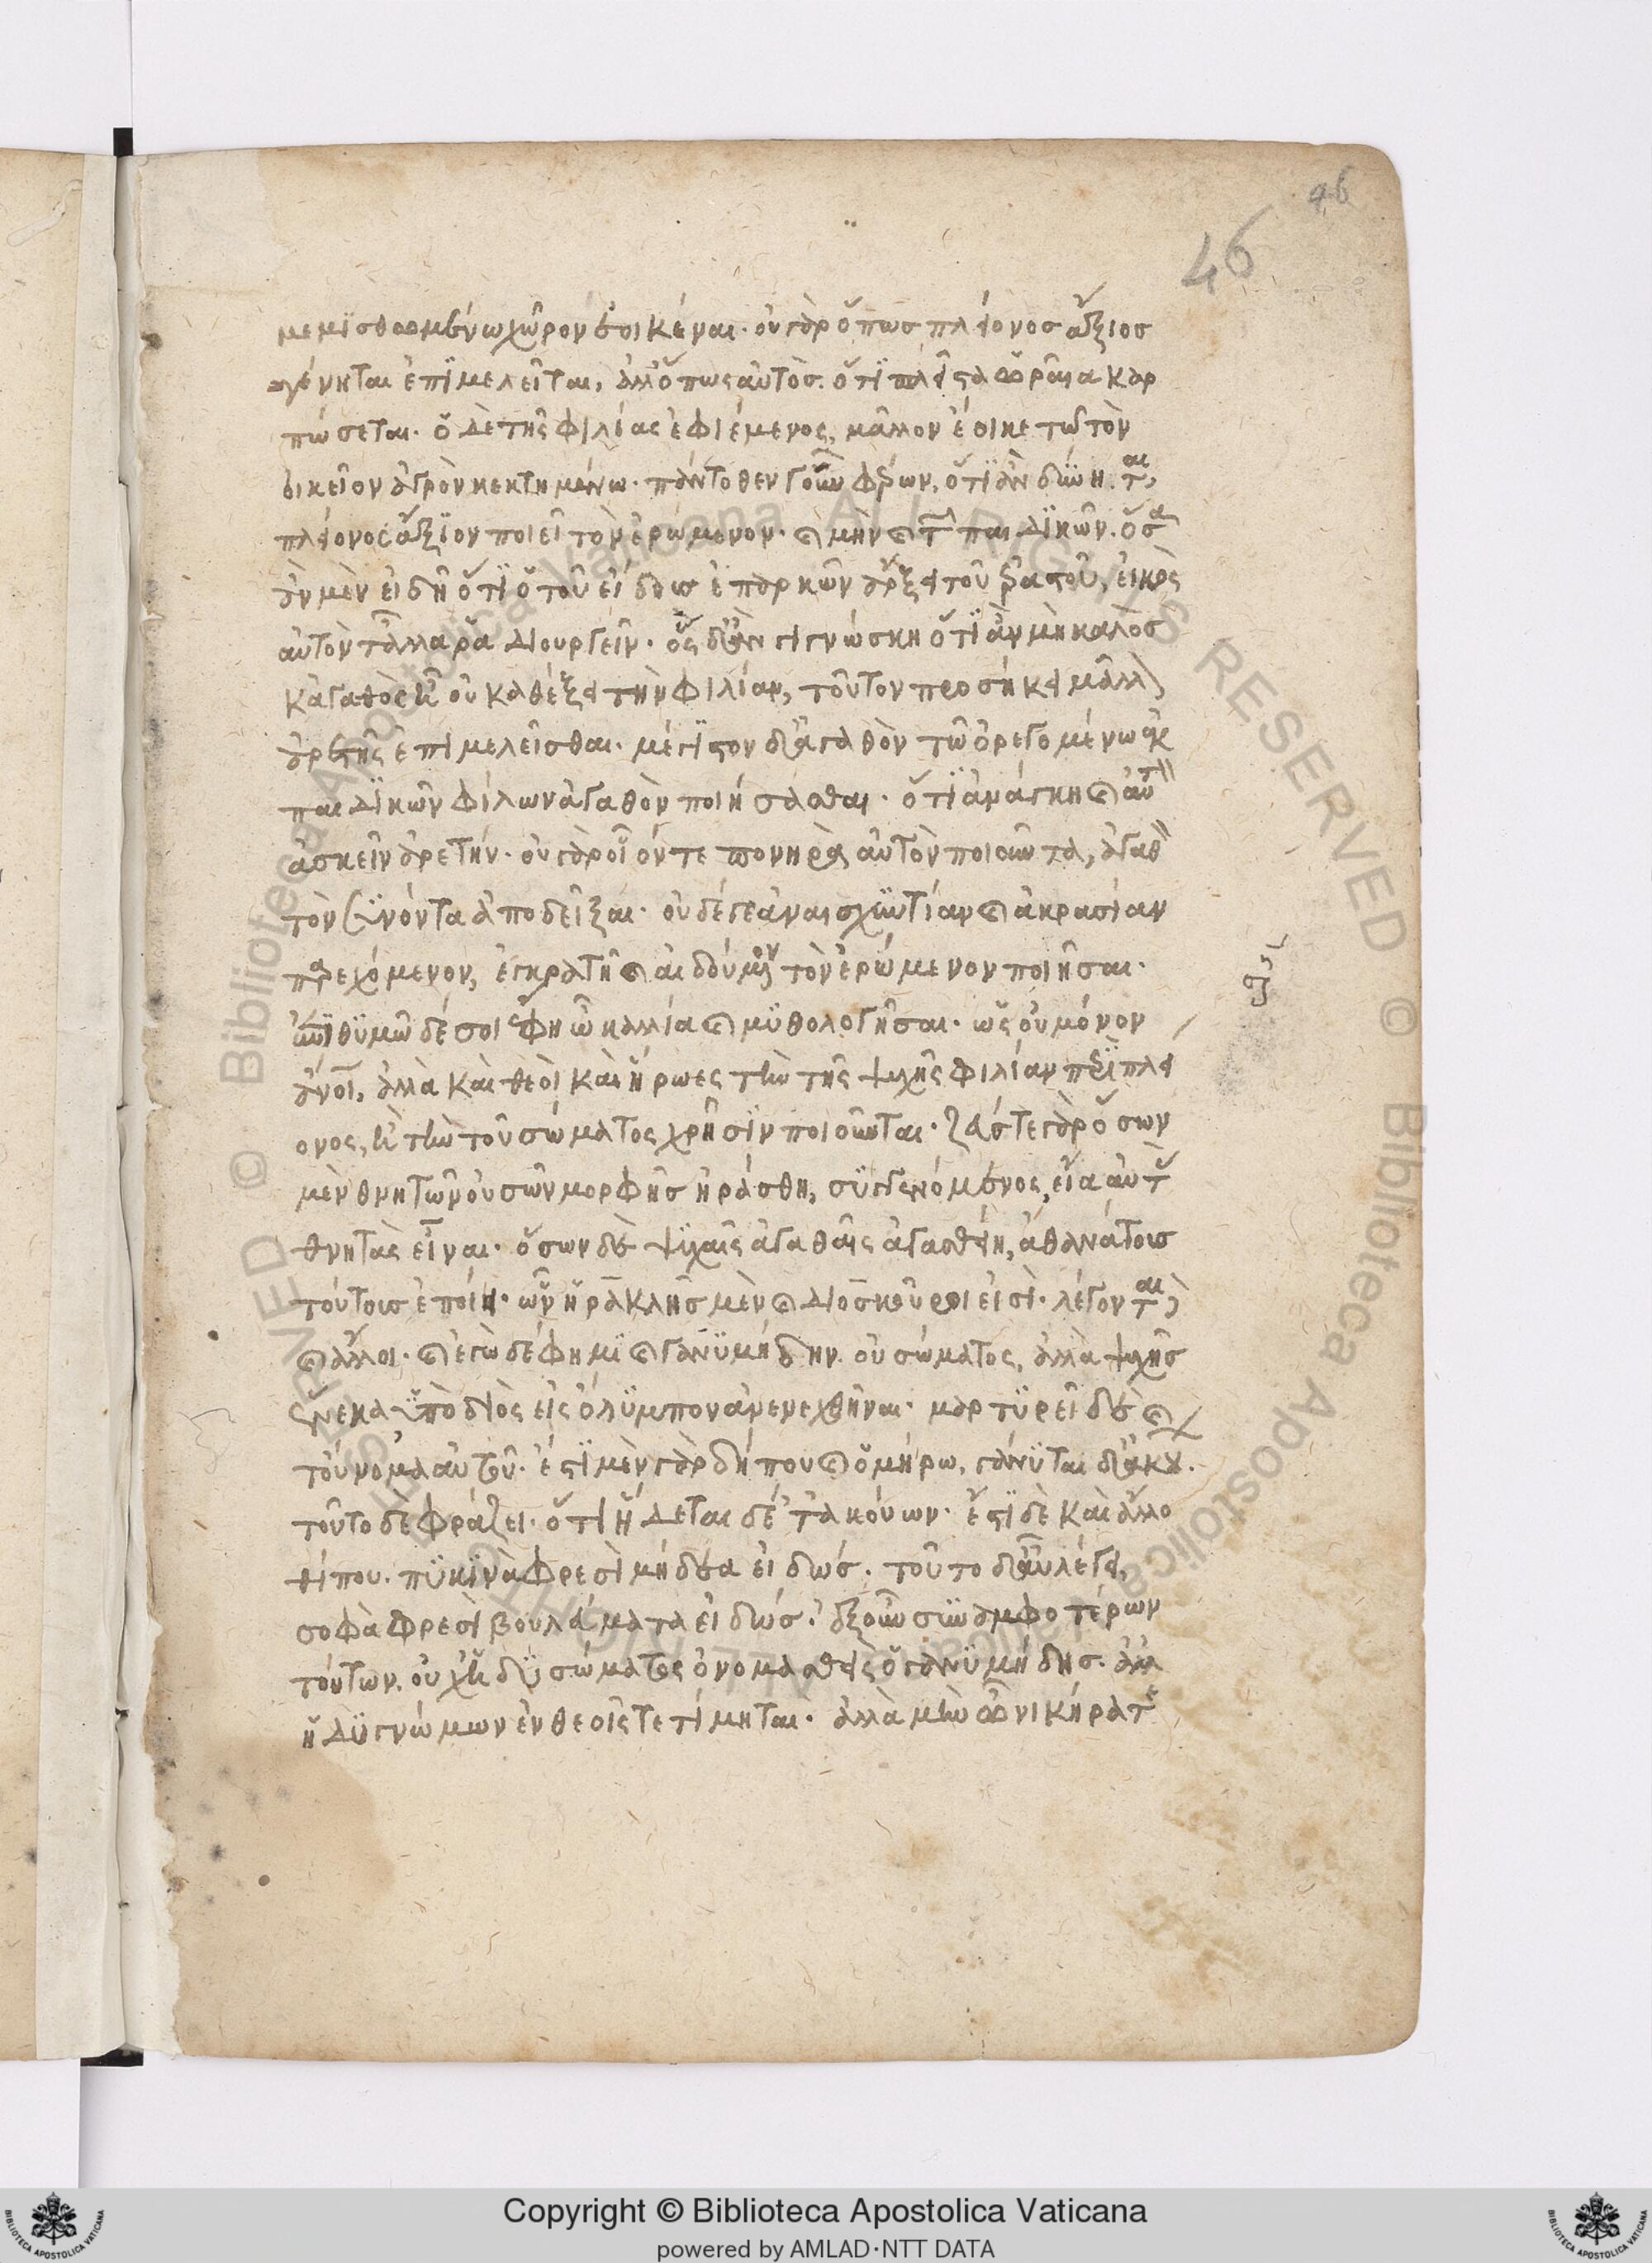 46
46
μεμϊσθωμένω χῶρον ἐοικέναι· οὐ γὰρ ὅπως πλείονος ἄξιος
γένηται ἐπϊμελεῖται, ἀλλ' ὅπως αὐτὸς ὅτϊ πλεῖστα ὡραῖα καρ
πώσεται· ὅ δὲ τῆς φιλίας ἐφιέμενος, μᾶλλον ἔοικε τῶ τὸν
οἰκεῖον ἀγρὸν κεκτημένω· πάντοθεν γοῦν φέρων, ὅτϊ ἂν δύνηται,
πλείονος ἄξϊον ποιεῖ τὸν ἐρώμενον· καὶ μὴν καὶ τ παιδϊκῶν· ὃς
ἂν μὲν εἰδῆ ὅτϊ ὁ τοῦ εἴδους ἐπαρκῶν ἄρξει τοῦ ἐραστοῦ, εἰκὸς
αὐτὸν τἄλλα ῥαδιουργεῖν· ὃς δ' ἂν γιγνώσκη ὅτϊ ἂν μὴ καλὸς
κἀγαθὸς ἦ οὐ καθέξει τὴν φιλίαν, τοῦτον προσήκει μᾶλλ
ἀρετῆς ἐπιμελεῖσθαι· μέγϊστον δ' ἀγαθὸν τῶ ὀρεγομένω ἐκ
παιδϊκῶν φίλων ἀγαθὸν ποιήσασθαι· ὅτϊ ἀνάγκη καὶ αὐτ
ἀσκεῖν ἀρετήν· οὐ γὰρ οἷόν τε πονηρὰ αὐτὸν ποιοῦντα, ἀγαθ
τὸν συνόντα ἀποδεῖξαι· οὐδέ γε ἀναισχυντίαν καὶ ἀκρασίαν
παρεχόμενον, ἐγκρατῆ καὶ αἰδούμενον τὸν ἐρώμενον ποιῆσαι·
ἐπϊθϋμῶ δέ σοι ἔφη ὦ καλλία καὶ μϋθολογῆσαι· ὡς οὐ μόνον
ἄνοι, ἀλλὰ καὶ θεοὶ καὶ ἥρωες τὴν τῆς ψχῆς φιλίαν περὶ πλεί
ονος, ἢ τὴν τοῦ σώματος χρῆσϊν ποιοῦνται· ζεύς τε γὰρ ὅσων
μὲν θνητῶν οὐσῶν μορφῆς ἠράσθη, συγγενόμενος, εἴα αὐτ
θνητὰς εἶναι· ὅσων δὲ ψχαῖς ἀγαθαῖς ἀγασθείη, ἀθανάτους
τούτους ἐποίει· ὧν ἡρακλῆς μὲν καὶ διόσκουροι εἰσὶ· λέγονται
καὶ ἄλλοι· καὶ ἐγὼ δέ φημϊ καὶ γανϋμήδην οὐ σώματος, ἀλλὰ ψχῆς
ἕνεκα ὑπὸ διὸς εἰς ὄλϋμπον ἀνενεχθῆναι· μαρτϋρεῖ δὲ καὶ
τοὔνομα αὐτοῦ· ἔστϊ μὲν γὰρ δήπου καὶ ὁμήρω, γάνϋται δ' ἀκού.
τοῦτο δὲ φράζει· ὅτι ἥδεται δέ τ' ἀκούων· ἔστϊ δὲ καὶ ἄλλο
θί που· πϋκϊνὰ φρεσὶ μήδεα εἰδώς· τοῦτο δ' αὖ λέγει,
σοφὰ φρεσὶ βουλεύματα εἰδώς· ἐξ οὖν συναμφοτέρων
τούτων, οὐχ ἡδϋσώματος ὀνομασθεὶς ὁ γανϋμήδης· ἀλλ
ἡδϋγνώμων ἐν θεοῖς τετίμηται· ἀλλὰ μὴν ὦ νικήρατε
Copyright © Biblioteca Apostolica Vaticana
powered by AMLAD·NTT DATA